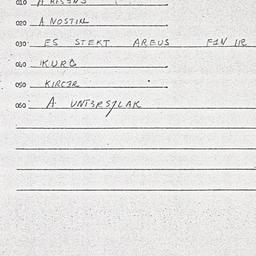 010
020 A NOSTIK
030 ES STEKT AREUS FIN IIR
040 KURG
050 KIRCER
060 A UNTERSYLAK